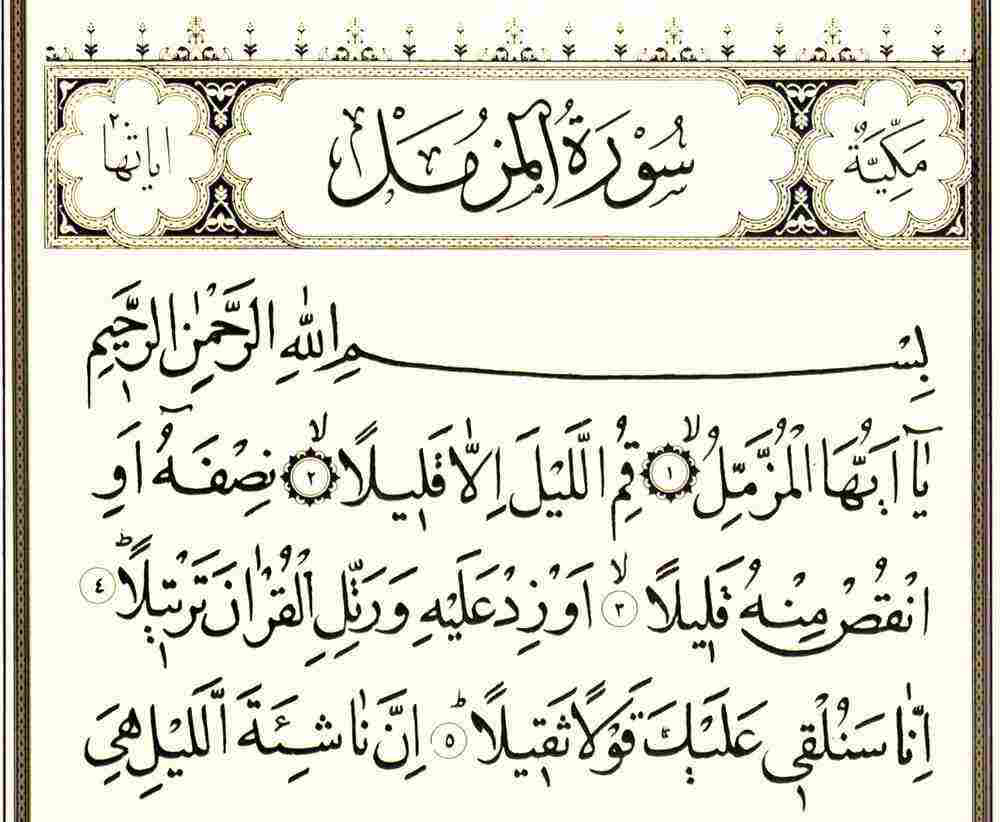 مَكِّيَّةٌ سُورَةُ الْمُزَّمِّلِ اياتها ٢٠
بِسْمِ اللهِ الرَّحْمٰنِ الرَّحِيمِ
يَٓا اَيُّهَا الْمُزَّمِّلُۙ ١ قُمِ الَّيْلَ اِلَّا قَلِيلًاۙ ٢ نِصْفَهُٓ اَوِ
انْقُصْ مِنْهُ قَلِيلًاۙ ٣ اَوْ زِدْ عَلَيْهِ وَرَتِّلِ الْقُرْاٰنَ تَرْتِيلًاۜ ٤
اِنَّا سَنُلْقِي عَلَيْكَ قَوْلًا ثَقِيلًاۜ ٥ اِنَّ نَاشِئَةَ الَّيْلِ هِيَ